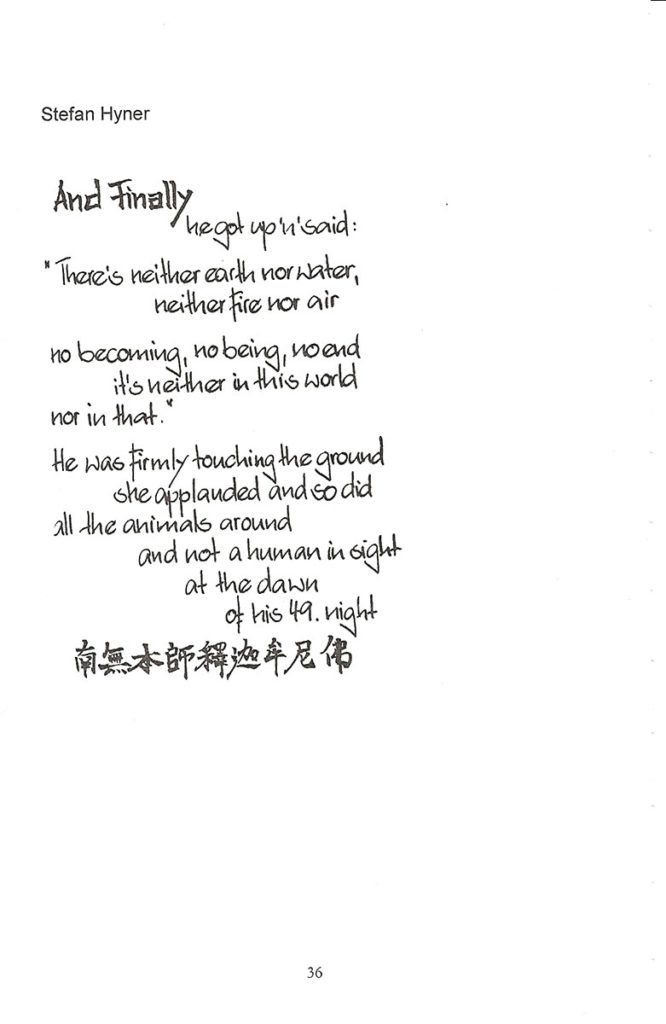 Stefan Hyner
And Finally
he got up 'n' said:
"There's neither earth nor water,
neither fire nor air
no becoming, no being, no end
it's neither in this world
nor in that."
He was firmly touching the ground
she applauded and so did
all the animals around
and not a human in sight
at the dawn
of his 49. night
南無本師釋迦牟尼佛
36